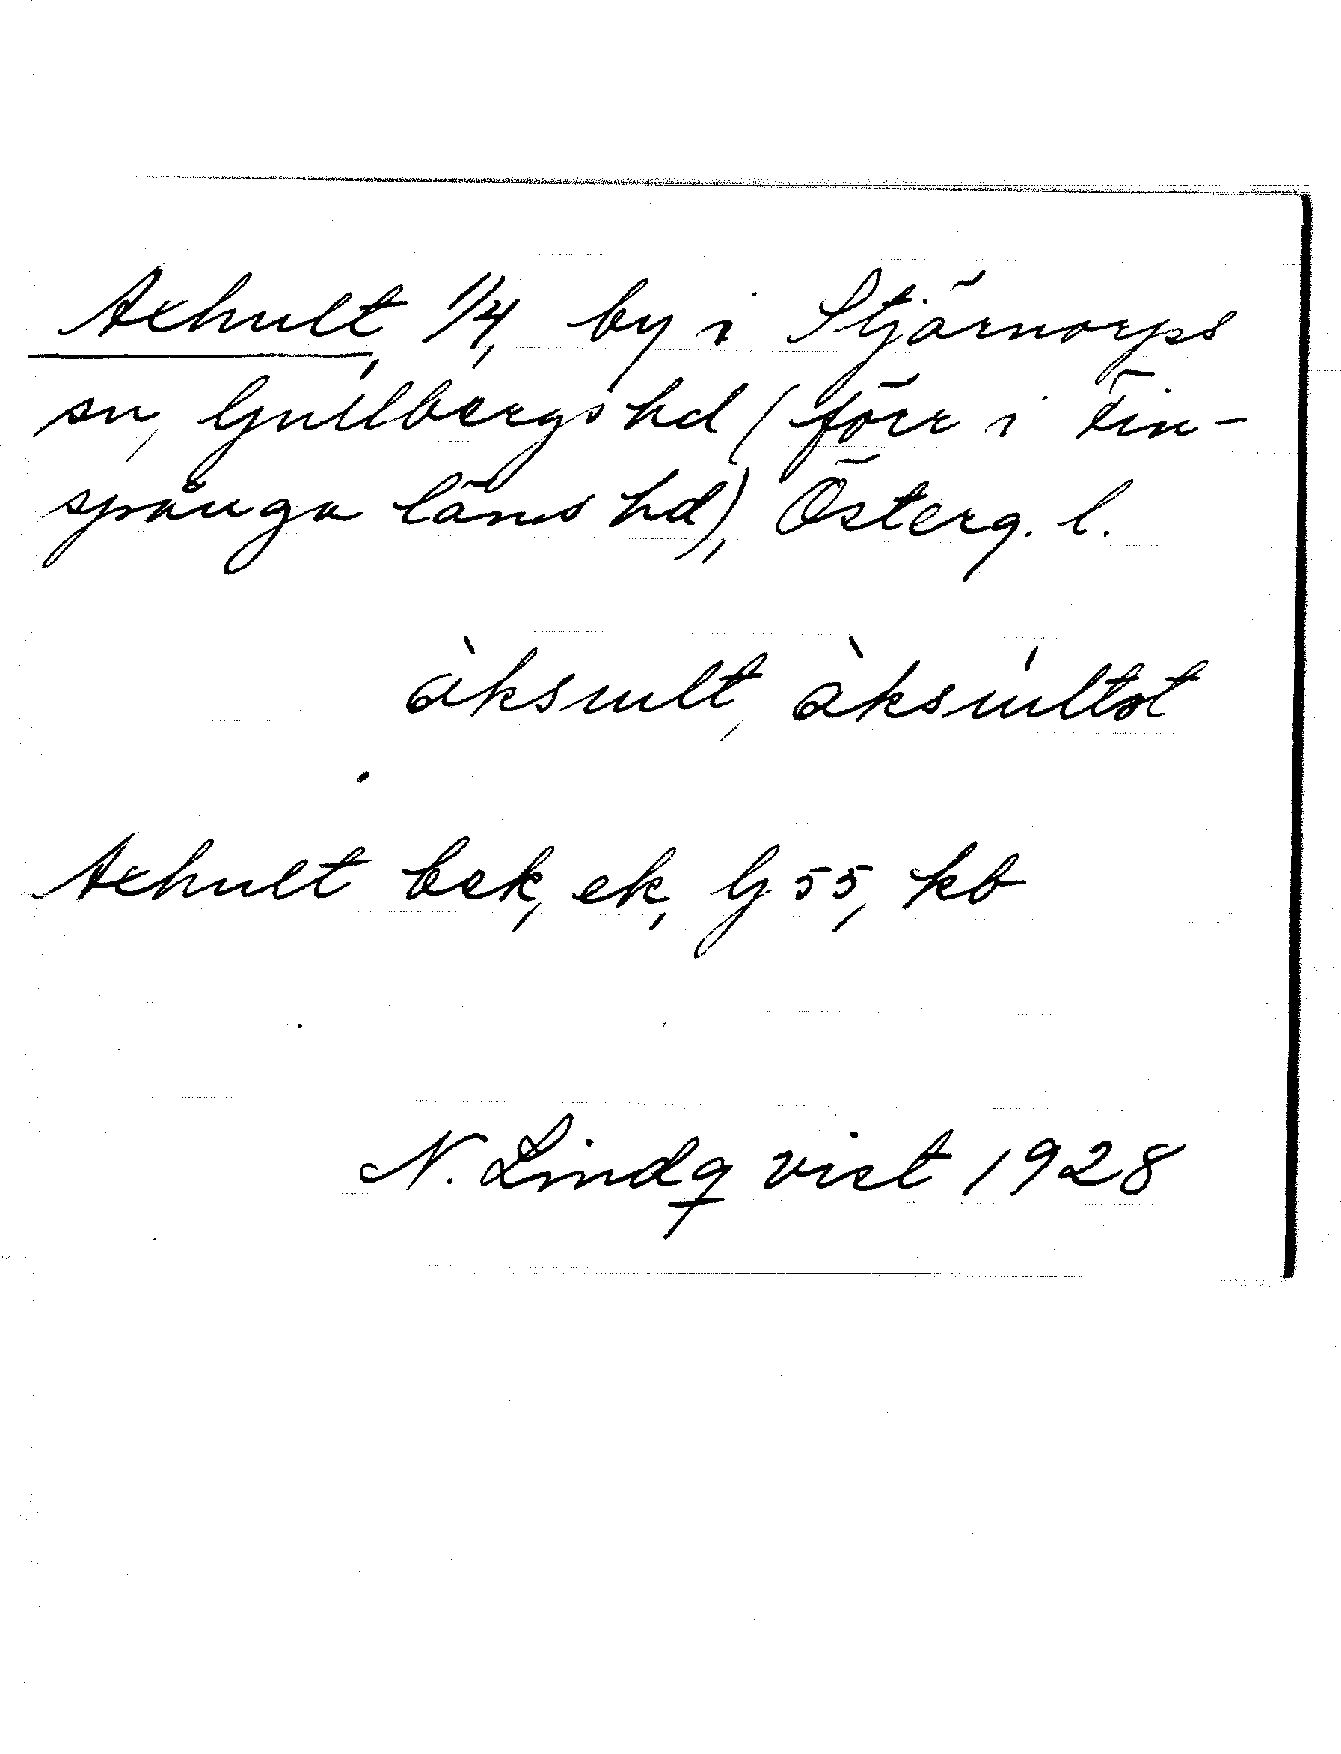 Axhult, 1/4, by i Stjärnorps
sn, Gullbergs hd (förr i Fin-
spånga läns hd), Österg. l.
àksult, àksúltət
Axhult bek, ek, G 55, kb
N. Lindqvist 1928